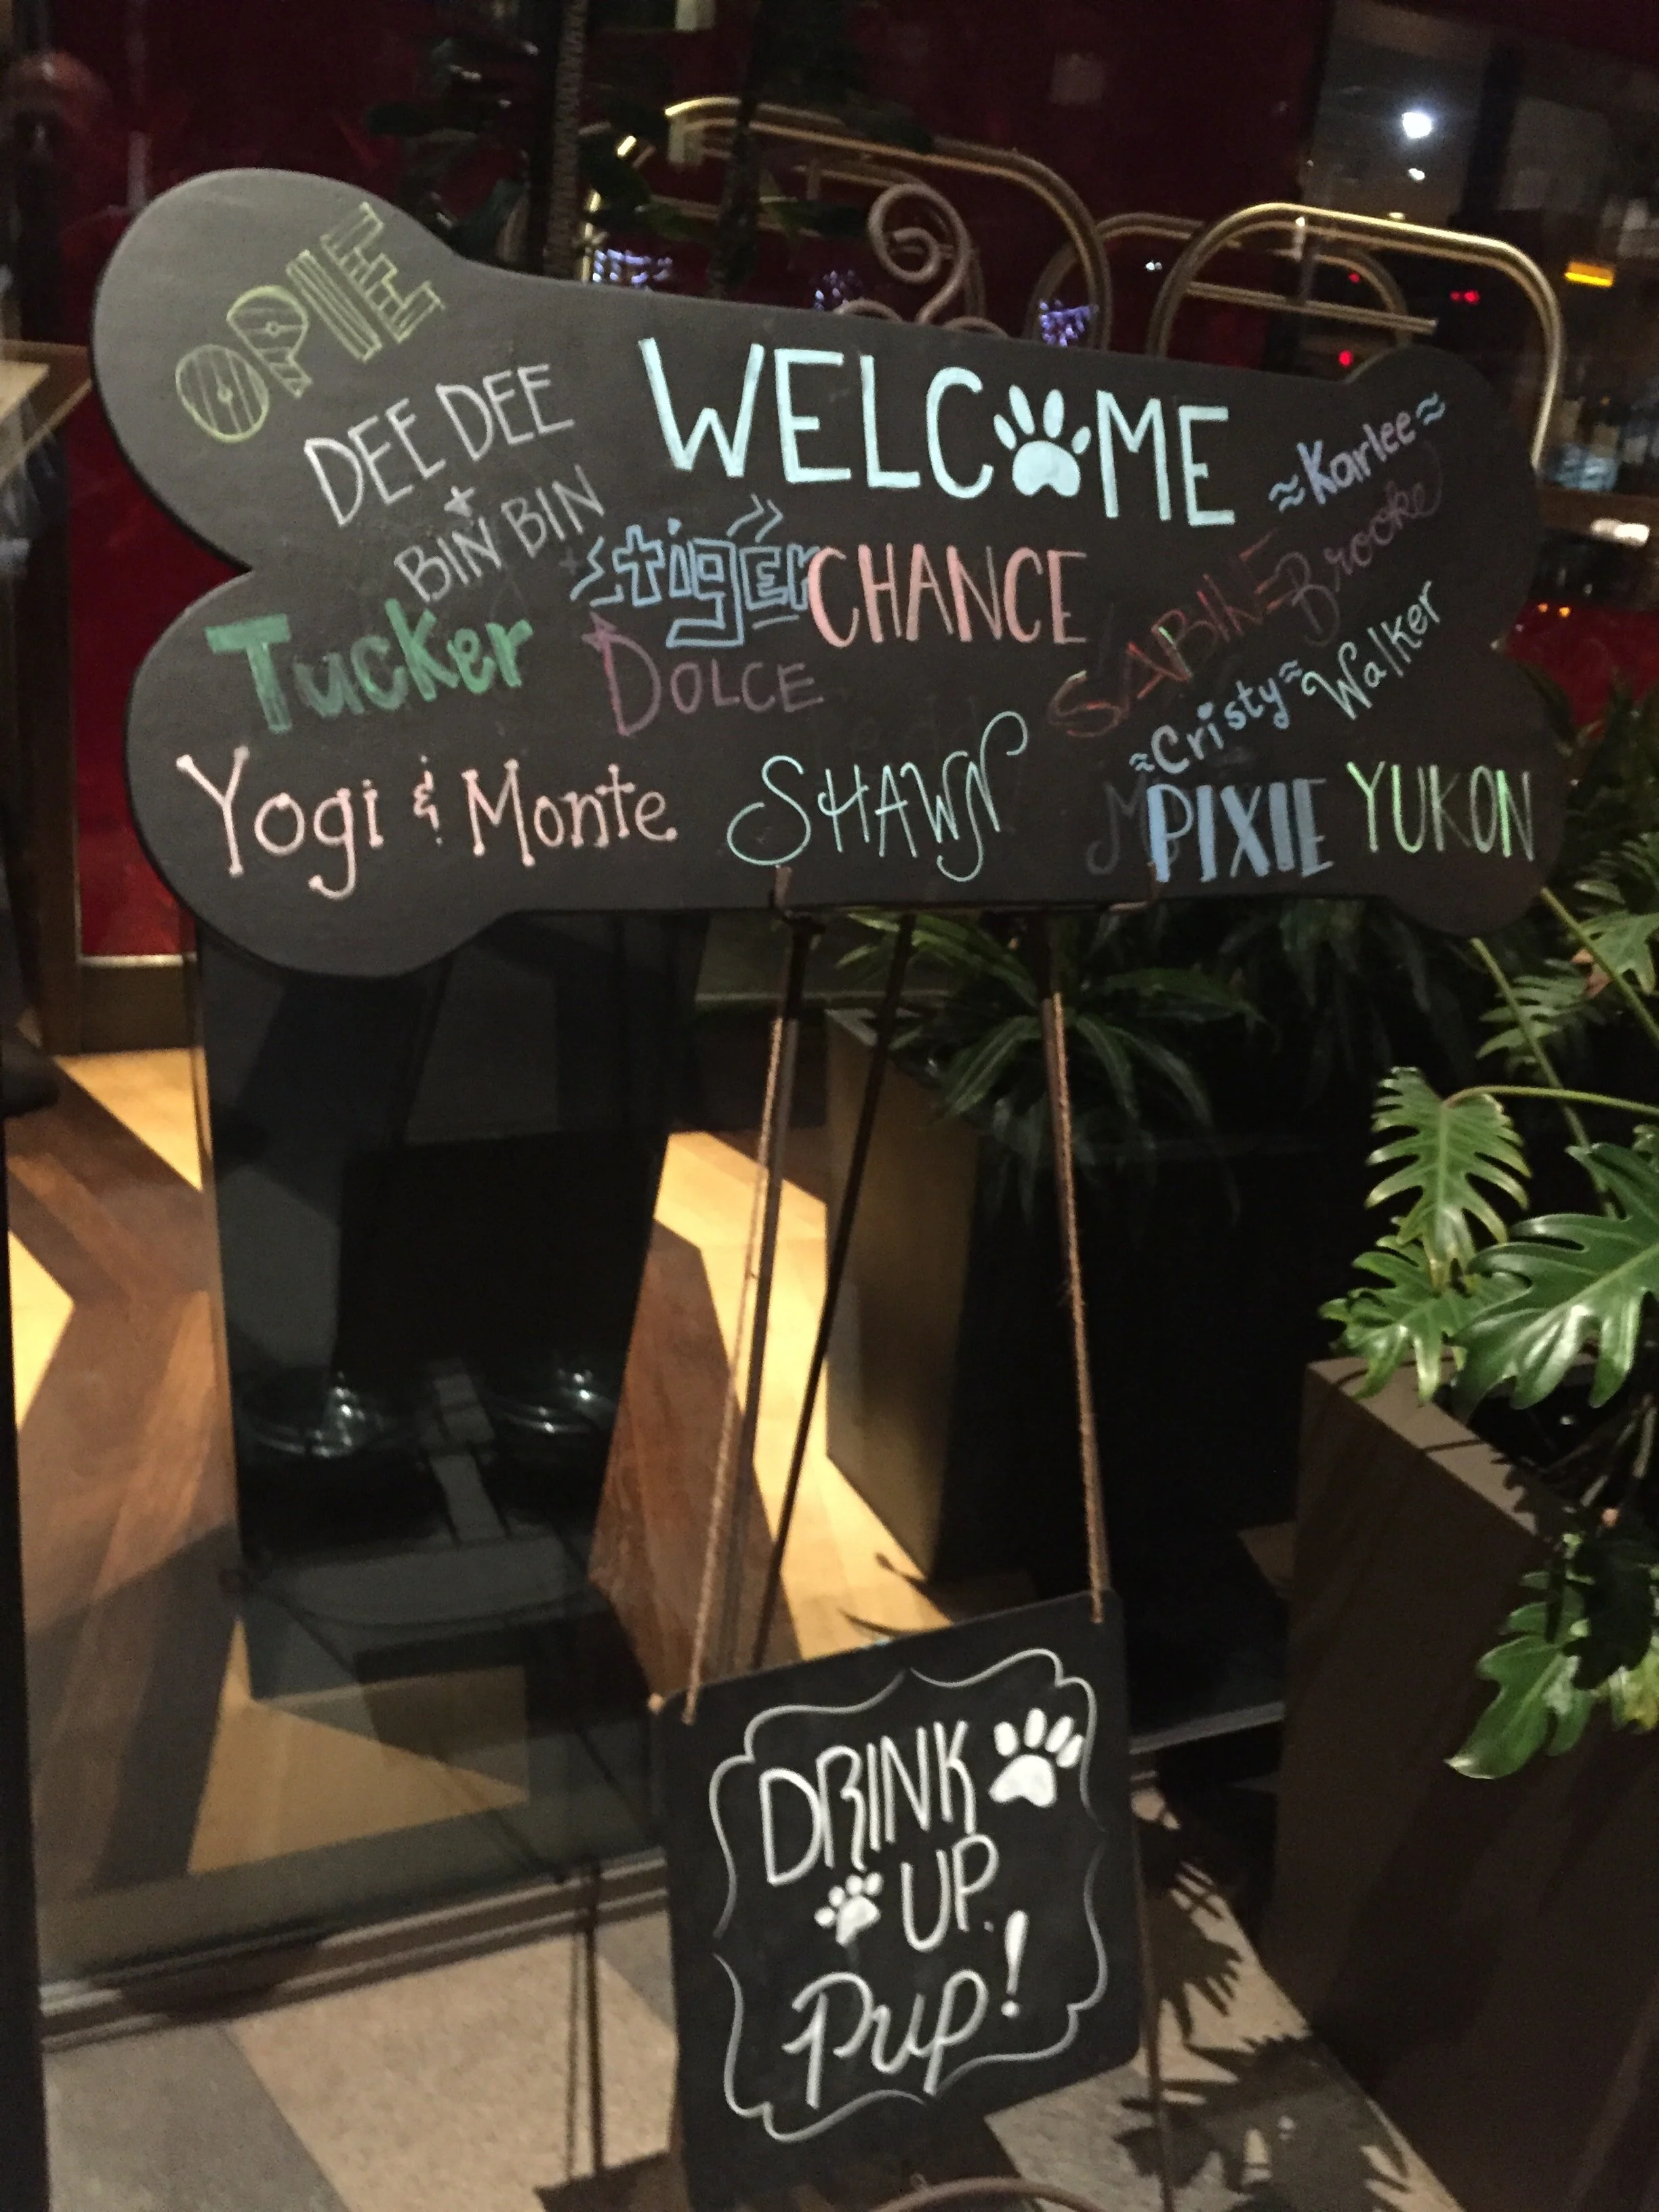 OPIE
DEE DEE
+
BIN BIN
WELCOME
≈Karlee≈
tiger
CHANCE
SABINE
Brooke
Tucker
DOLCE
≈Cristy≈
Walker
Yogi & Monte
SHAWN
PIXIE
YUKON
DRINK
UP
Pup!